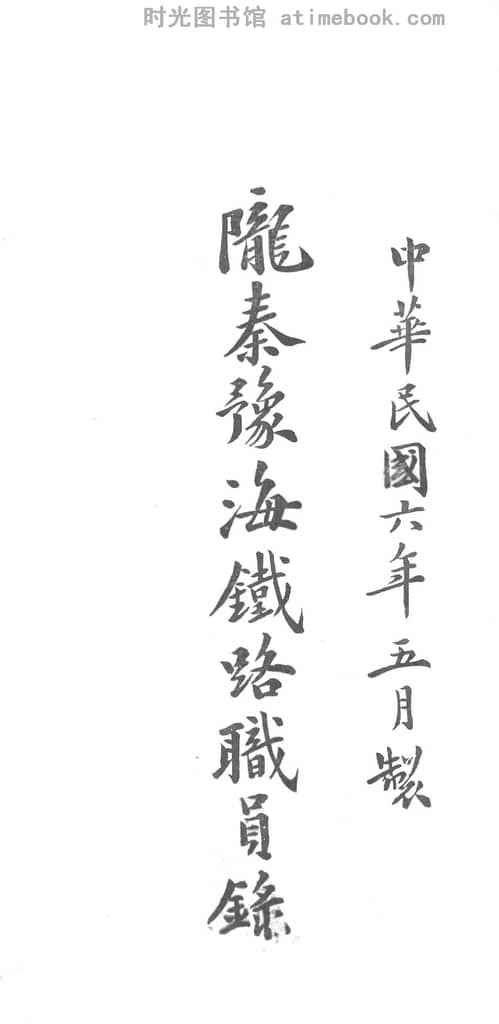 时光图书馆 atimebook.com
中華民國六年五月製
隴秦豫海鐵路職員錄